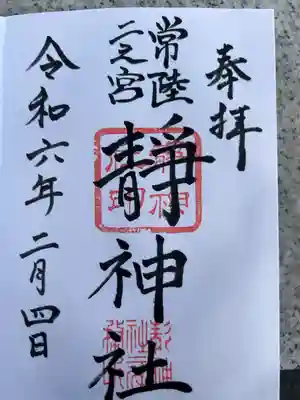 奉拝
常陸
二之宮
靜神社
令和六年二月四日